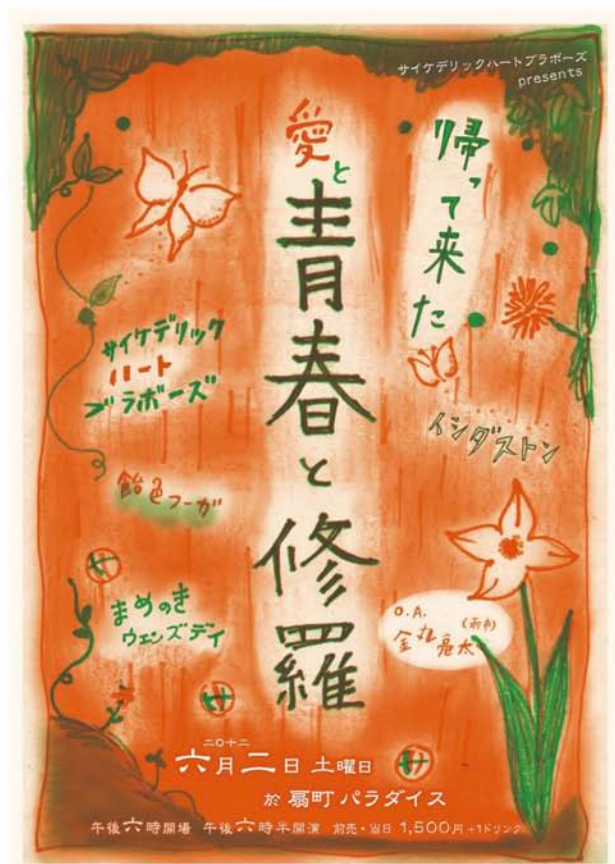 サイケデリックハートブラボーズ
presents
帰って来た
愛と青春と修羅
サイケデリック
ハート
ブラボーズ
イシダストン
飴色フーガ
まめのき
ウェンズデイ
O.A.
金丸亮太
二〇十二
六月二日 土曜日
於 扇町パラダイス
午後六時開場 午後六時半開演 前売・当日 1,500円+1ドリンク